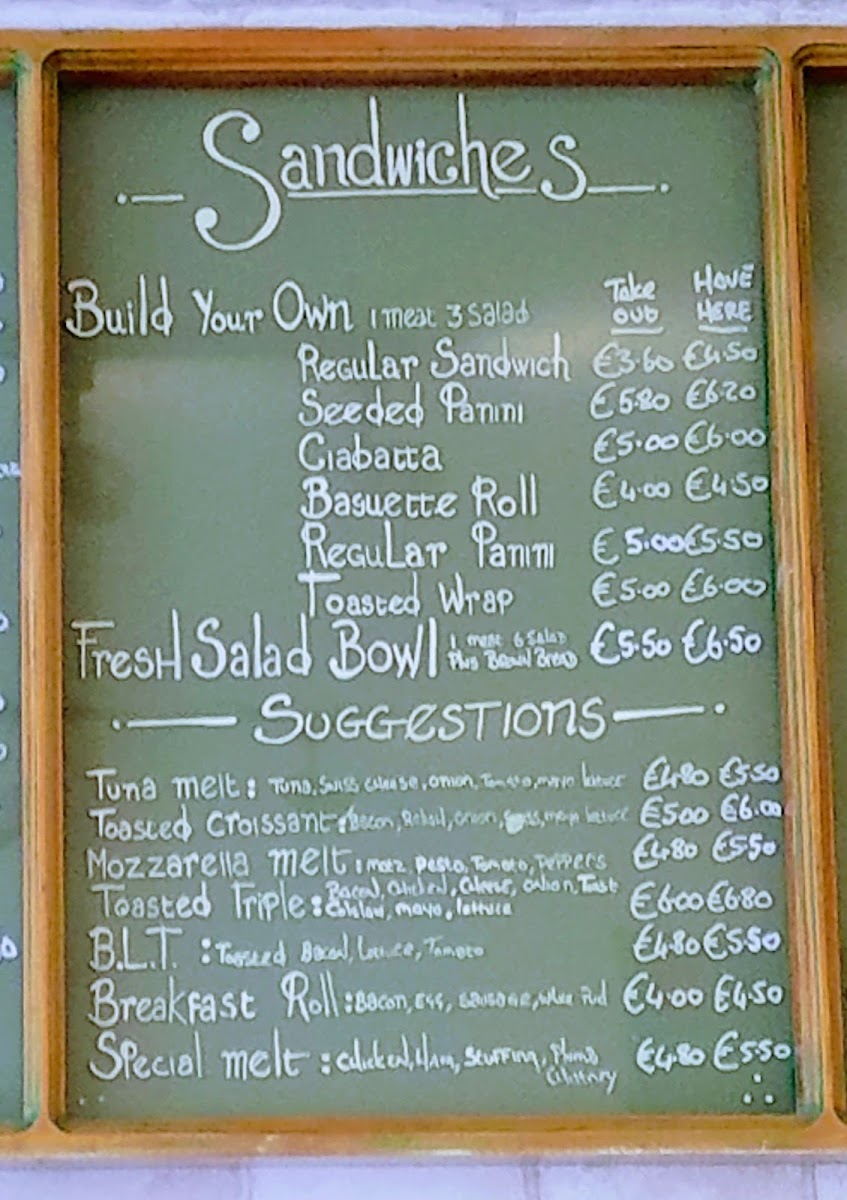 Sandwiches
Build Your Own 1 meat 3 Salad Take out Have Here
Regular Sandwich €3.60 €4.50
Seeded Panini €5.80 €6.20
Ciabatta €5.00 €6.00
Baguette Roll €4.00 €4.50
Regular Panini €5.00 €5.50
Toasted Wrap €5.00 €6.00
Fresh Salad Bowl 1 meat 6 Salad Plus Brown Bread €5.50 €6.50
Suggestions
Tuna melt: Tuna, Swiss Cheese, onion, Tomato, mayo lettuce €4.80 €5.50
Toasted Croissant: Bacon, Relish, onion, Swiss, mayo lettuce €5.00 €6.00
Mozzarella melt: mozz, Pesto, Tomato, Peppers €4.80 €5.50
Toasted Triple: Bacon, Chicken, Cheese, onion, mayo, lettuce €6.00 €6.80
B.L.T. : Toasted Bacon, Lettuce, Tomato €4.80 €5.50
Breakfast Roll: Bacon, Egg, Sausage, White Pud €4.00 €4.50
Special melt : Chicken, Ham, Stuffing, €4.80 €5.50